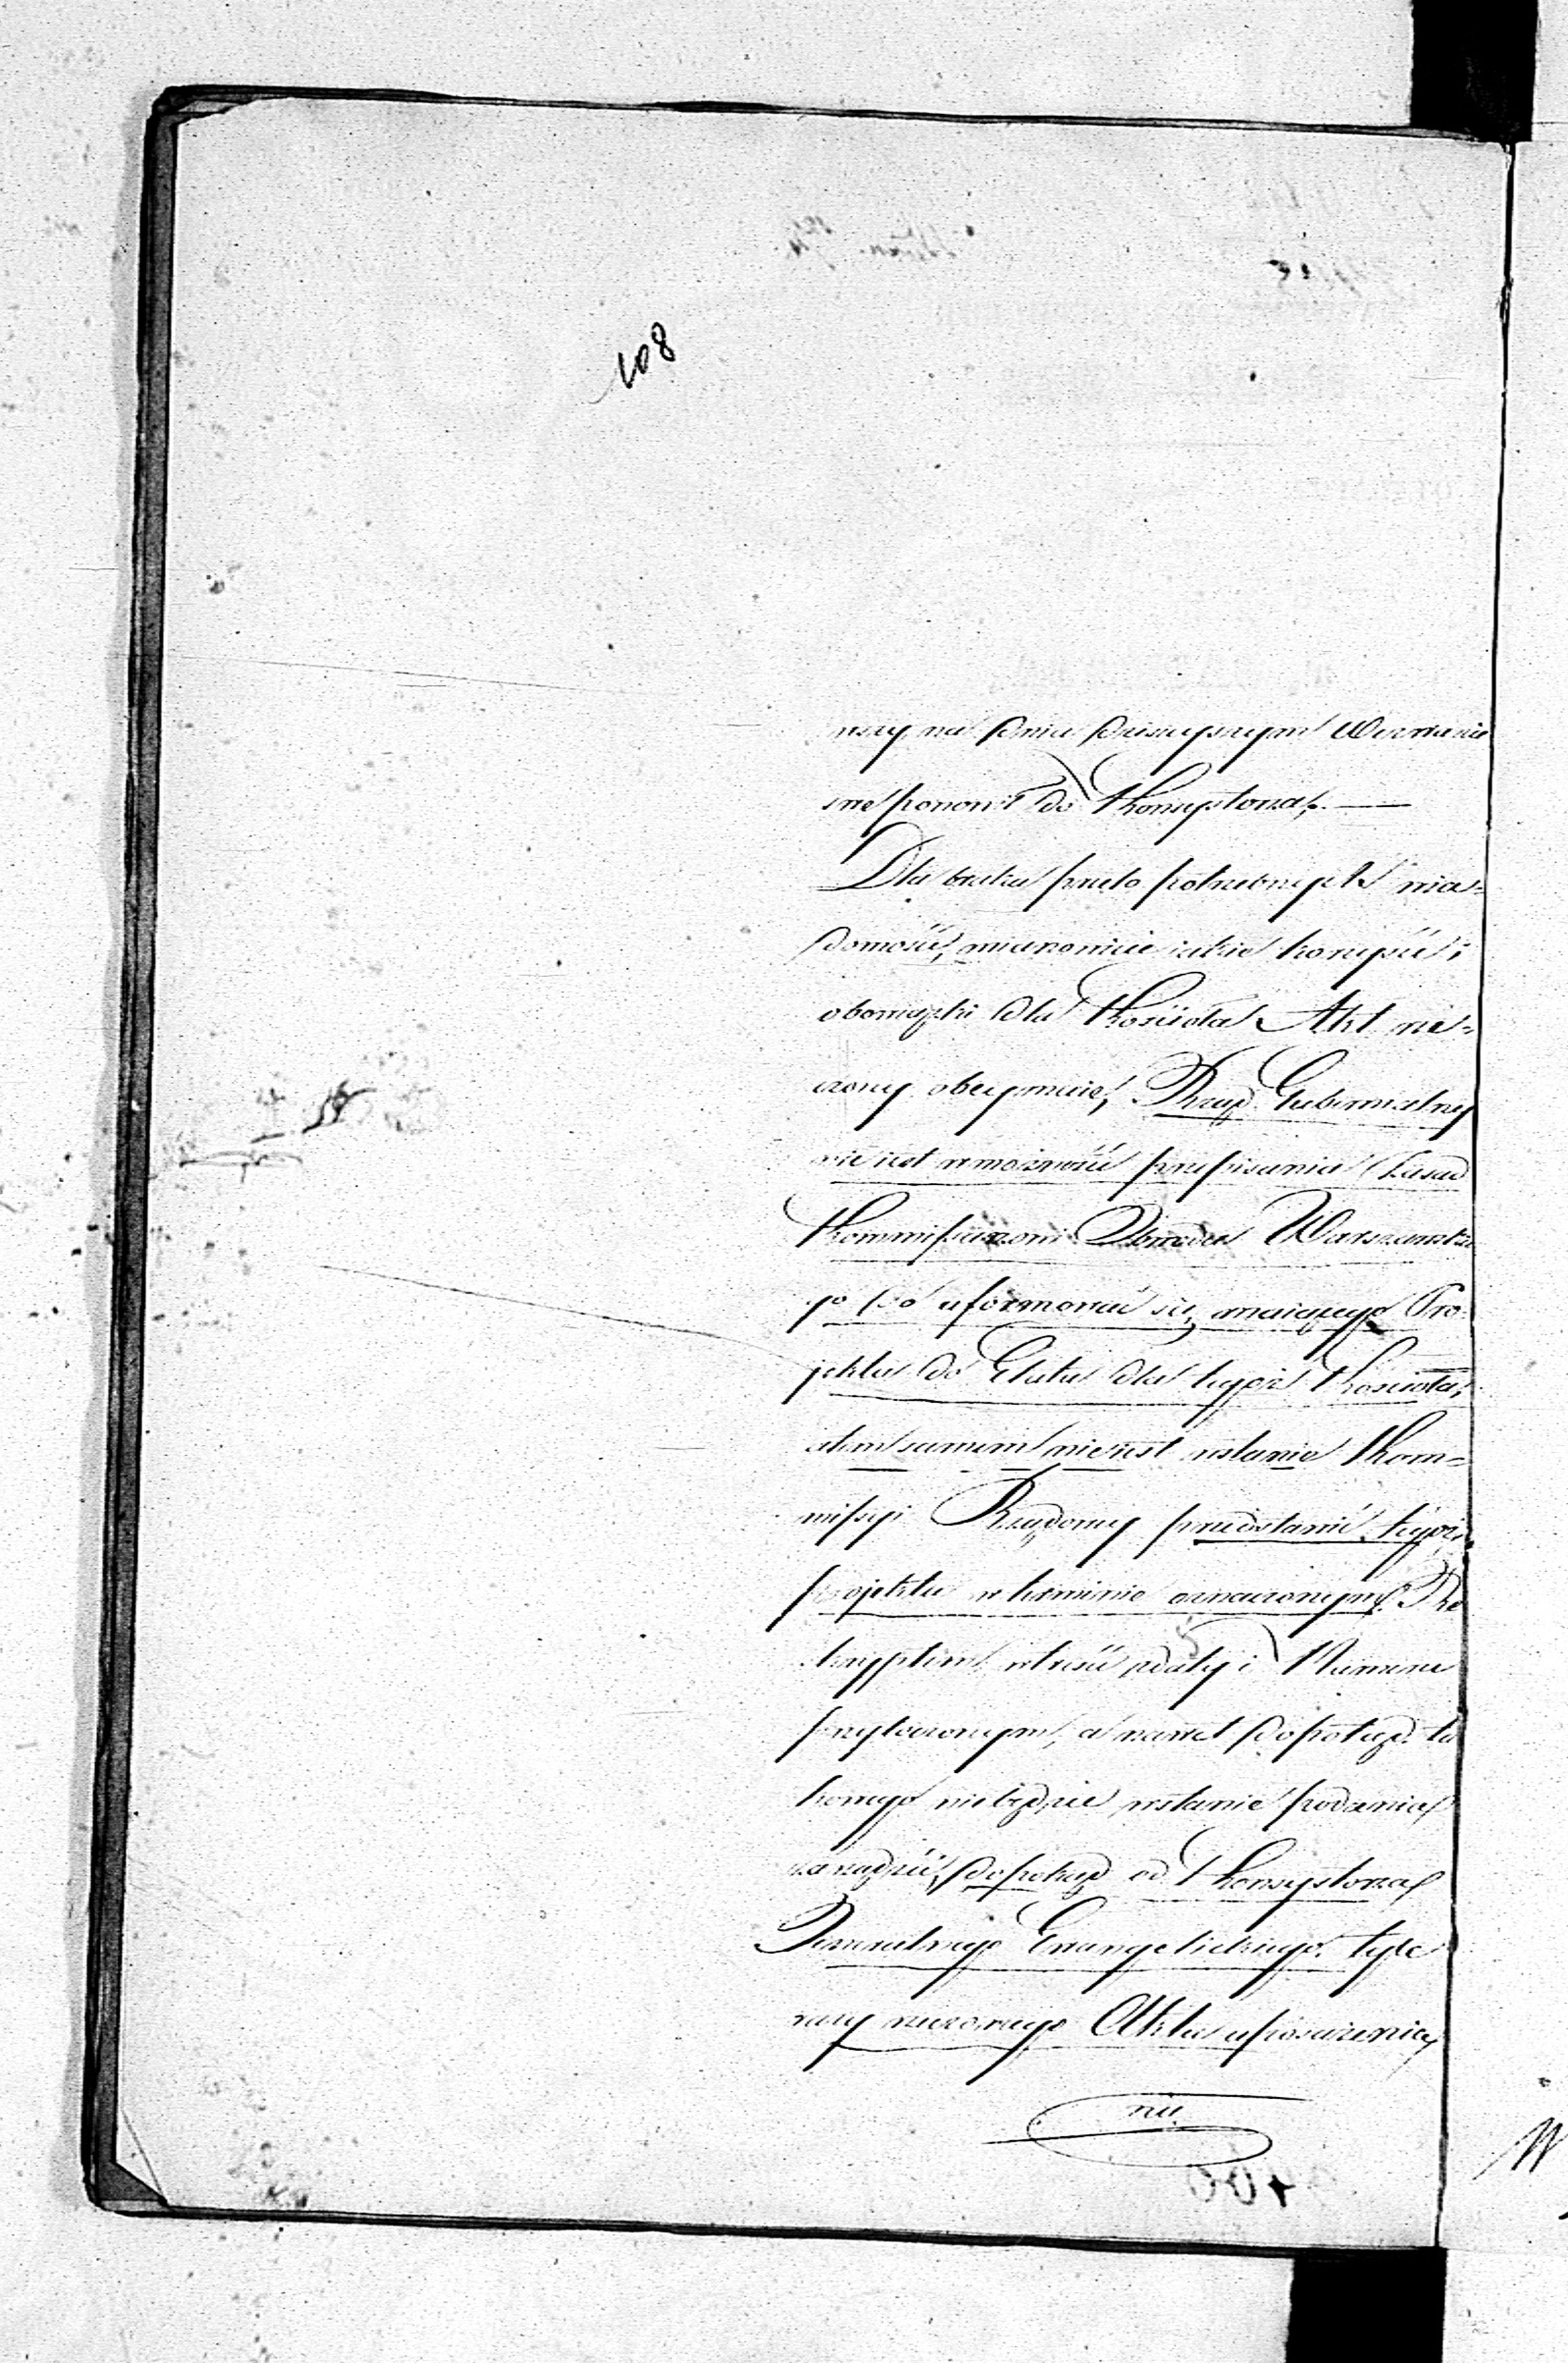 108
wszy na dniu dzisieyszym Wezwanie
swe ponowił do Konsystorza,
Dla braku przeto potrzebnych wia=
domości, mianowicie iakie korzyści i
obowiązki dla Kościoła Akt rze=
czony obeymuie, Rząd Gubernialny
nie iest w możności przepisania Zasad
Kommissarzowi Obwodu Warszawskie
go do uformować się maiącego Pro
jektu do Etatu dla tegoż Kościoła,
a tem samem nie iest wstanie Kom=
missyi Rządowey przedstawić tegoż
projektu w terminie oznaczonym Re
skryptem w treści z daty i Numeru
przytoczonym, a nawet dopotąd ta
kowego niebędzie wstanie podania
zarządzić, dopokąd od Konsystorza
Generalnego Ewangelickiego tyle
razy rzeczonego Aktu uposażenia
nie